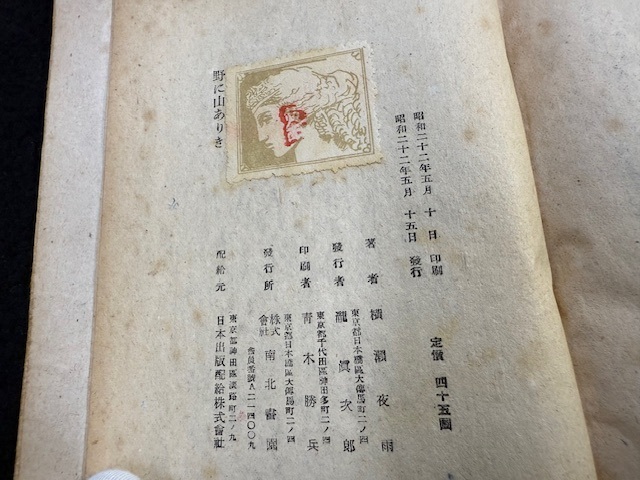 昭和二十二年五月 十 日 印刷
昭和二十二年五月 十五日 發行
定價 四十五圓
野に山ありき
著者 横瀬夜雨
東京都日本橋區大傳馬町二ノ四
發行者 瀧眞次郎
東京都千代田區神田多町二ノ四
印刷者 青木勝兵
東京都日本橋區大傳馬町二ノ四
發行所 株式會社 南北書園
會員番號A二一四〇〇九
東京都神田區淡路町二ノ九
配給元 日本出版配給株式會社